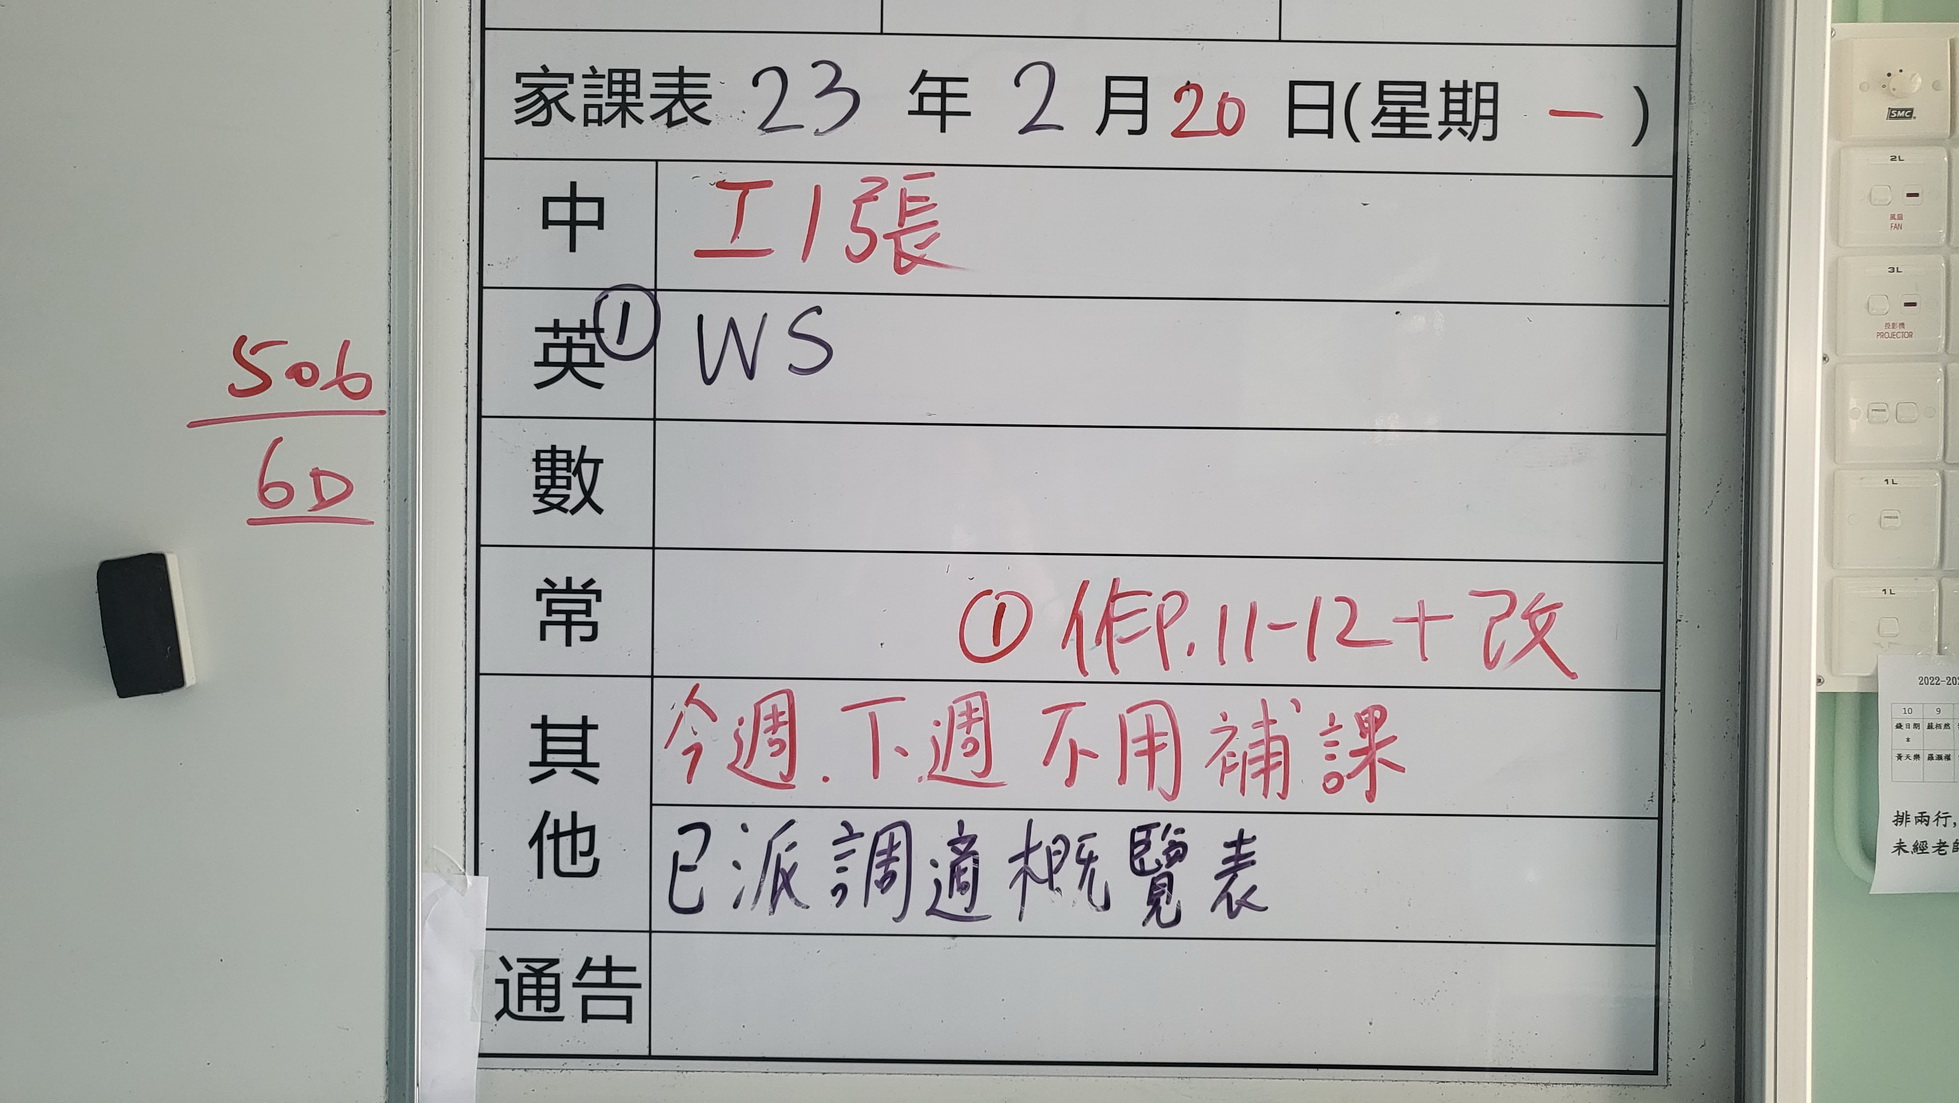 家課表 23 年 2 月 20 日(星期 一)
中 工1張
英① WS
數
常 ①作P.11-12+改
其他 今週.下週不用補課
已派調適概覽表
通告
506
6D
SMC
2L
風扇
FAN
3L
投影機
PROJECTOR
1L
1L
2022-20
10 9
排兩行,
未經老師